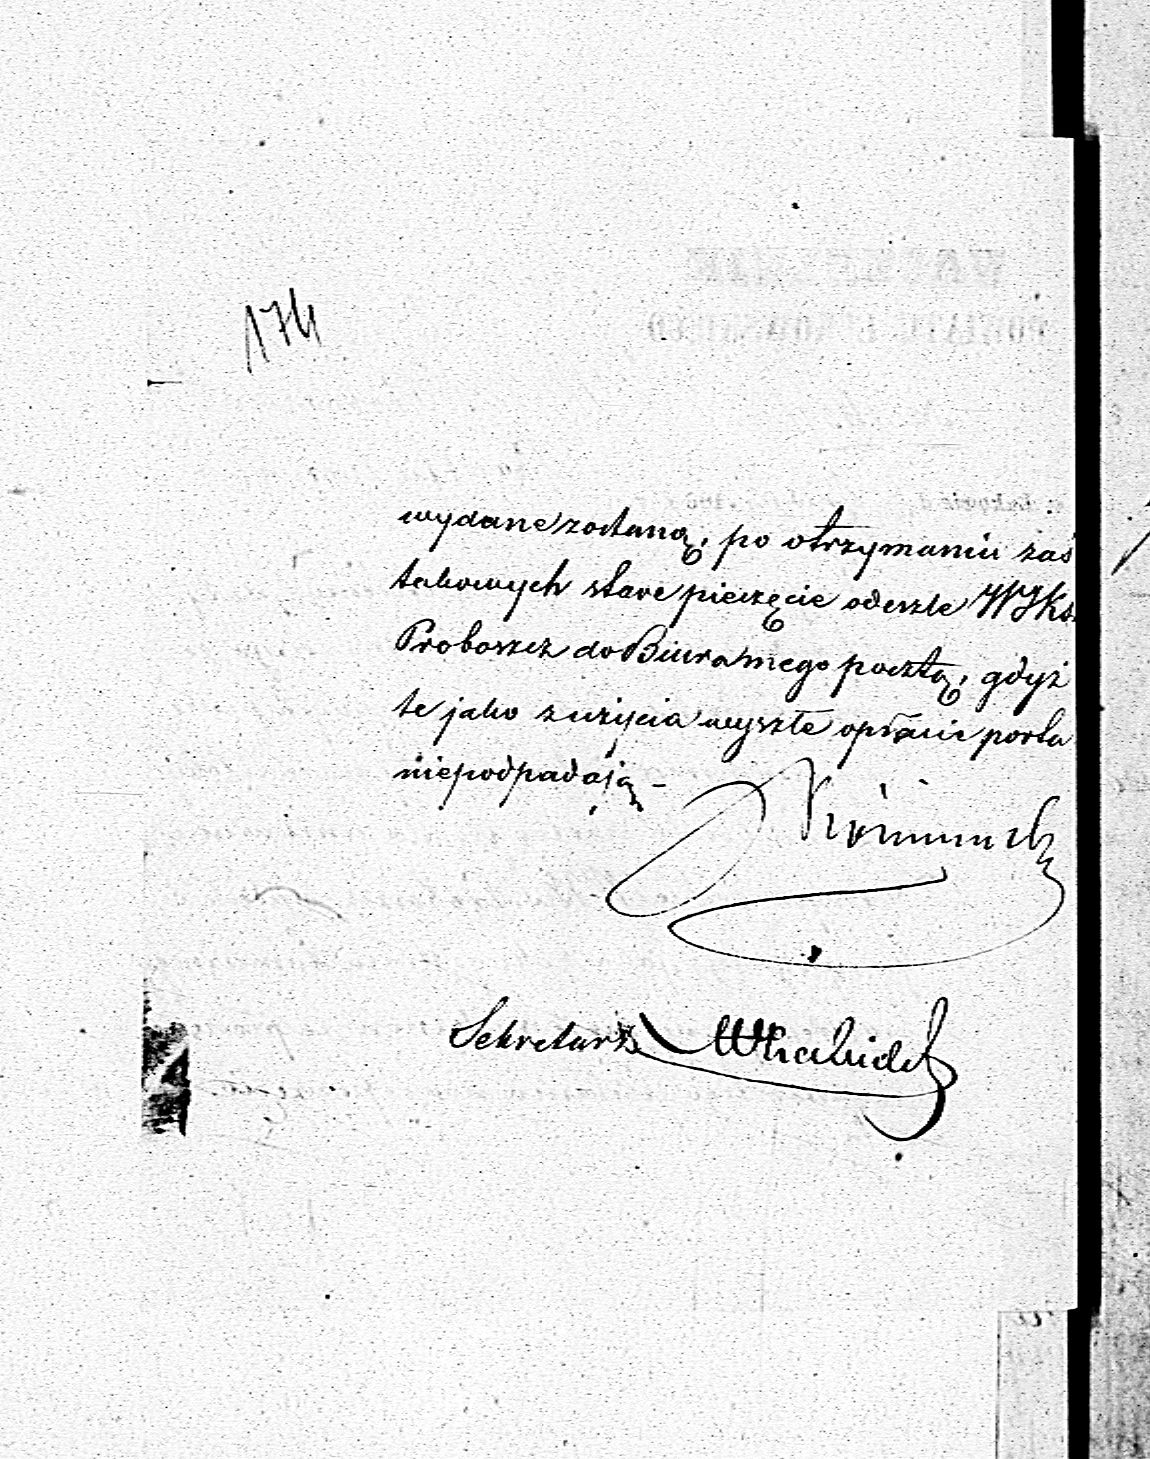 174
wydane zostaną, po otrzymaniu zaś
takowych stare pieczęcie odeszle WJKs.
Proboszcz do Biura mego pocztą, gdyż
te jako z użycia wyszłe opłacie porta
niepodpadają –
Sekretarz